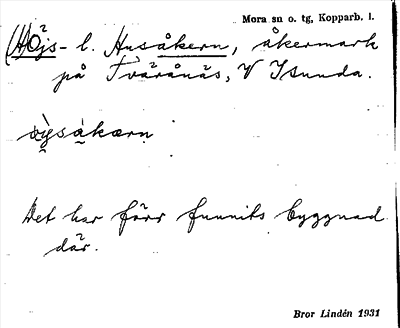 Mora sn o. tg, Kopparb. l.
(H)Öjs- l. Husåkern, åkermark
på Tvårånäs, V Isunda.
Det har förr funnits byggnad
där.
Bror Lindén 1931